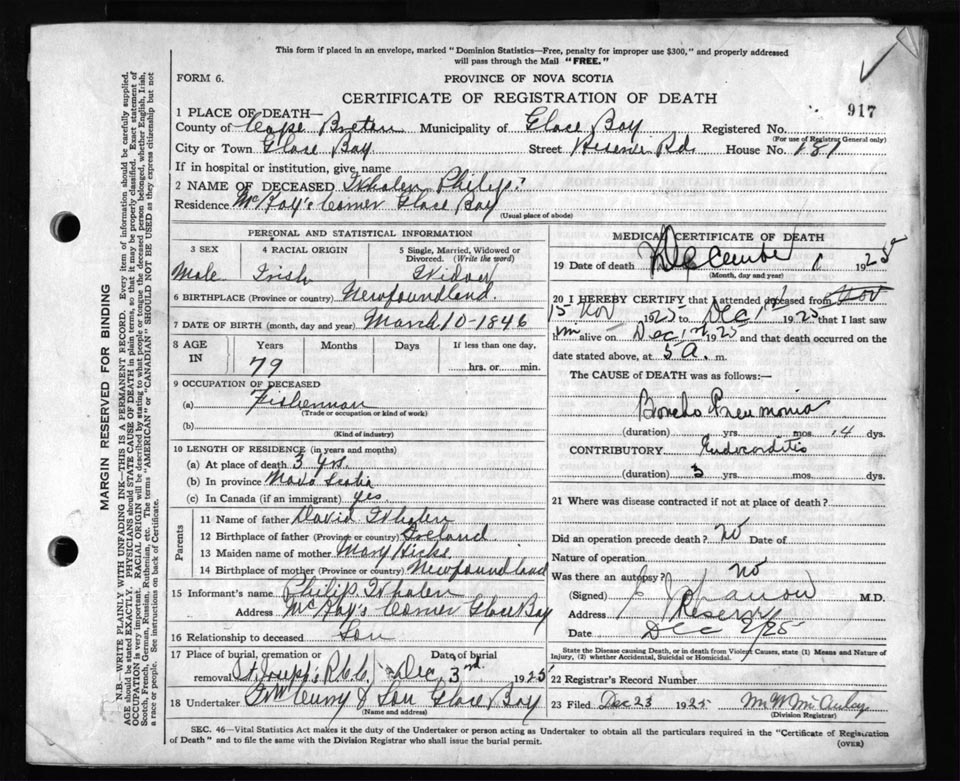 This form if placed in an envelope, marked "Dominion Statistics—Free, penalty for improper use $300," and properly addressed
will pass through the Mail "FREE."
FORM 6.
PROVINCE OF NOVA SCOTIA
CERTIFICATE OF REGISTRATION OF DEATH
917
1 PLACE OF DEATH—
County of Cape Breton Municipality of Glace Bay Registered No.
(For use of Registrar General only)
City or Town Glace Bay Street Reserve Rd. House No. 181
If in hospital or institution, give name
2 NAME OF DECEASED Whalen Philip
Residence McKay's Corner Glace Bay
(Usual place of abode)
PERSONAL AND STATISTICAL INFORMATION
3 SEX 4 RACIAL ORIGIN 5 Single, Married, Widowed or
Divorced. (Write the word)
Male Irish Widow
6 BIRTHPLACE (Province or country) Newfoundland.
7 DATE OF BIRTH (month, day and year) March 10-1846
8 AGE IN Years Months Days If less than one day,
79 hrs. or min.
9 OCCUPATION OF DECEASED
(a) Fisherman
(Trade or occupation or kind of work)
(b)
(Kind of industry)
10 LENGTH OF RESIDENCE (in years and months)
(a) At place of death 3 yrs.
(b) In province Nova Scotia
(c) In Canada (if an immigrant) yes
Parents
11 Name of father David Whalen
12 Birthplace of father (Province or country) Ireland
13 Maiden name of mother Mary Hicks
14 Birthplace of mother (Province or country) Newfoundland
15 Informant's name Philip Whalen
Address McKay's Corner Glace Bay
16 Relationship to deceased Son
17 Place of burial, cremation or Date of burial
removal St Joseph's R.C.C. Dec, 3rd 1925
18 Undertaker Curry & Son Glace Bay
(Name and address)
MEDICAL CERTIFICATE OF DEATH
19 Date of death December 1 1925
(Month, day and year)
20 I HEREBY CERTIFY that I attended deceased from Nov
15 Nov 1925 to Dec 1st 1925 that I last saw
h im alive on Dec 1st 1925 and that death occurred on the
date stated above, at 5 a. m.
The CAUSE of DEATH was as follows:—
Broncho Pneumonia
(duration) yrs. mos. 14 dys.
CONTRIBUTORY Endocarditis
(duration) 3 yrs. mos. dys.
21 Where was disease contracted if not at place of death?
Did an operation precede death? No Date of
Nature of operation
Was there an autopsy? No
(Signed) M.D.
Address Reserve
Date Dec 2/25
State the Disease causing Death, or in death from Violent Causes, state (1) Means and Nature of
Injury, (2) whether Accidental, Suicidal or Homicidal.
22 Registrar's Record Number
23 Filed Dec 23 1925 M W McAuley
(Division Registrar)
SEC. 46—Vital Statistics Act makes it the duty of the Undertaker or person acting as Undertaker to obtain all the particulars required in the "Certificate of Registration
of Death" and to file the same with the Division Registrar who shall issue the burial permit.
(OVER)
MARGIN RESERVED FOR BINDING
N.B.—WRITE PLAINLY WITH UNFADING INK—THIS IS A PERMANENT RECORD. Every item of information should be carefully supplied.
AGE should be stated EXACTLY. PHYSICIANS should STATE CAUSE OF DEATH in plain terms, so that it may be properly classified. Exact statement of
OCCUPATION is very important. RACIAL ORIGIN will be described by stating to what people or tongue the deceased person belonged, whether English, Irish,
Scotch, French, German, Russian, Ruthenian, etc. The terms "AMERICAN" or "CANADIAN" SHOULD NOT BE USED as they express citizenship but not
a race or people. See instructions on back of Certificate.